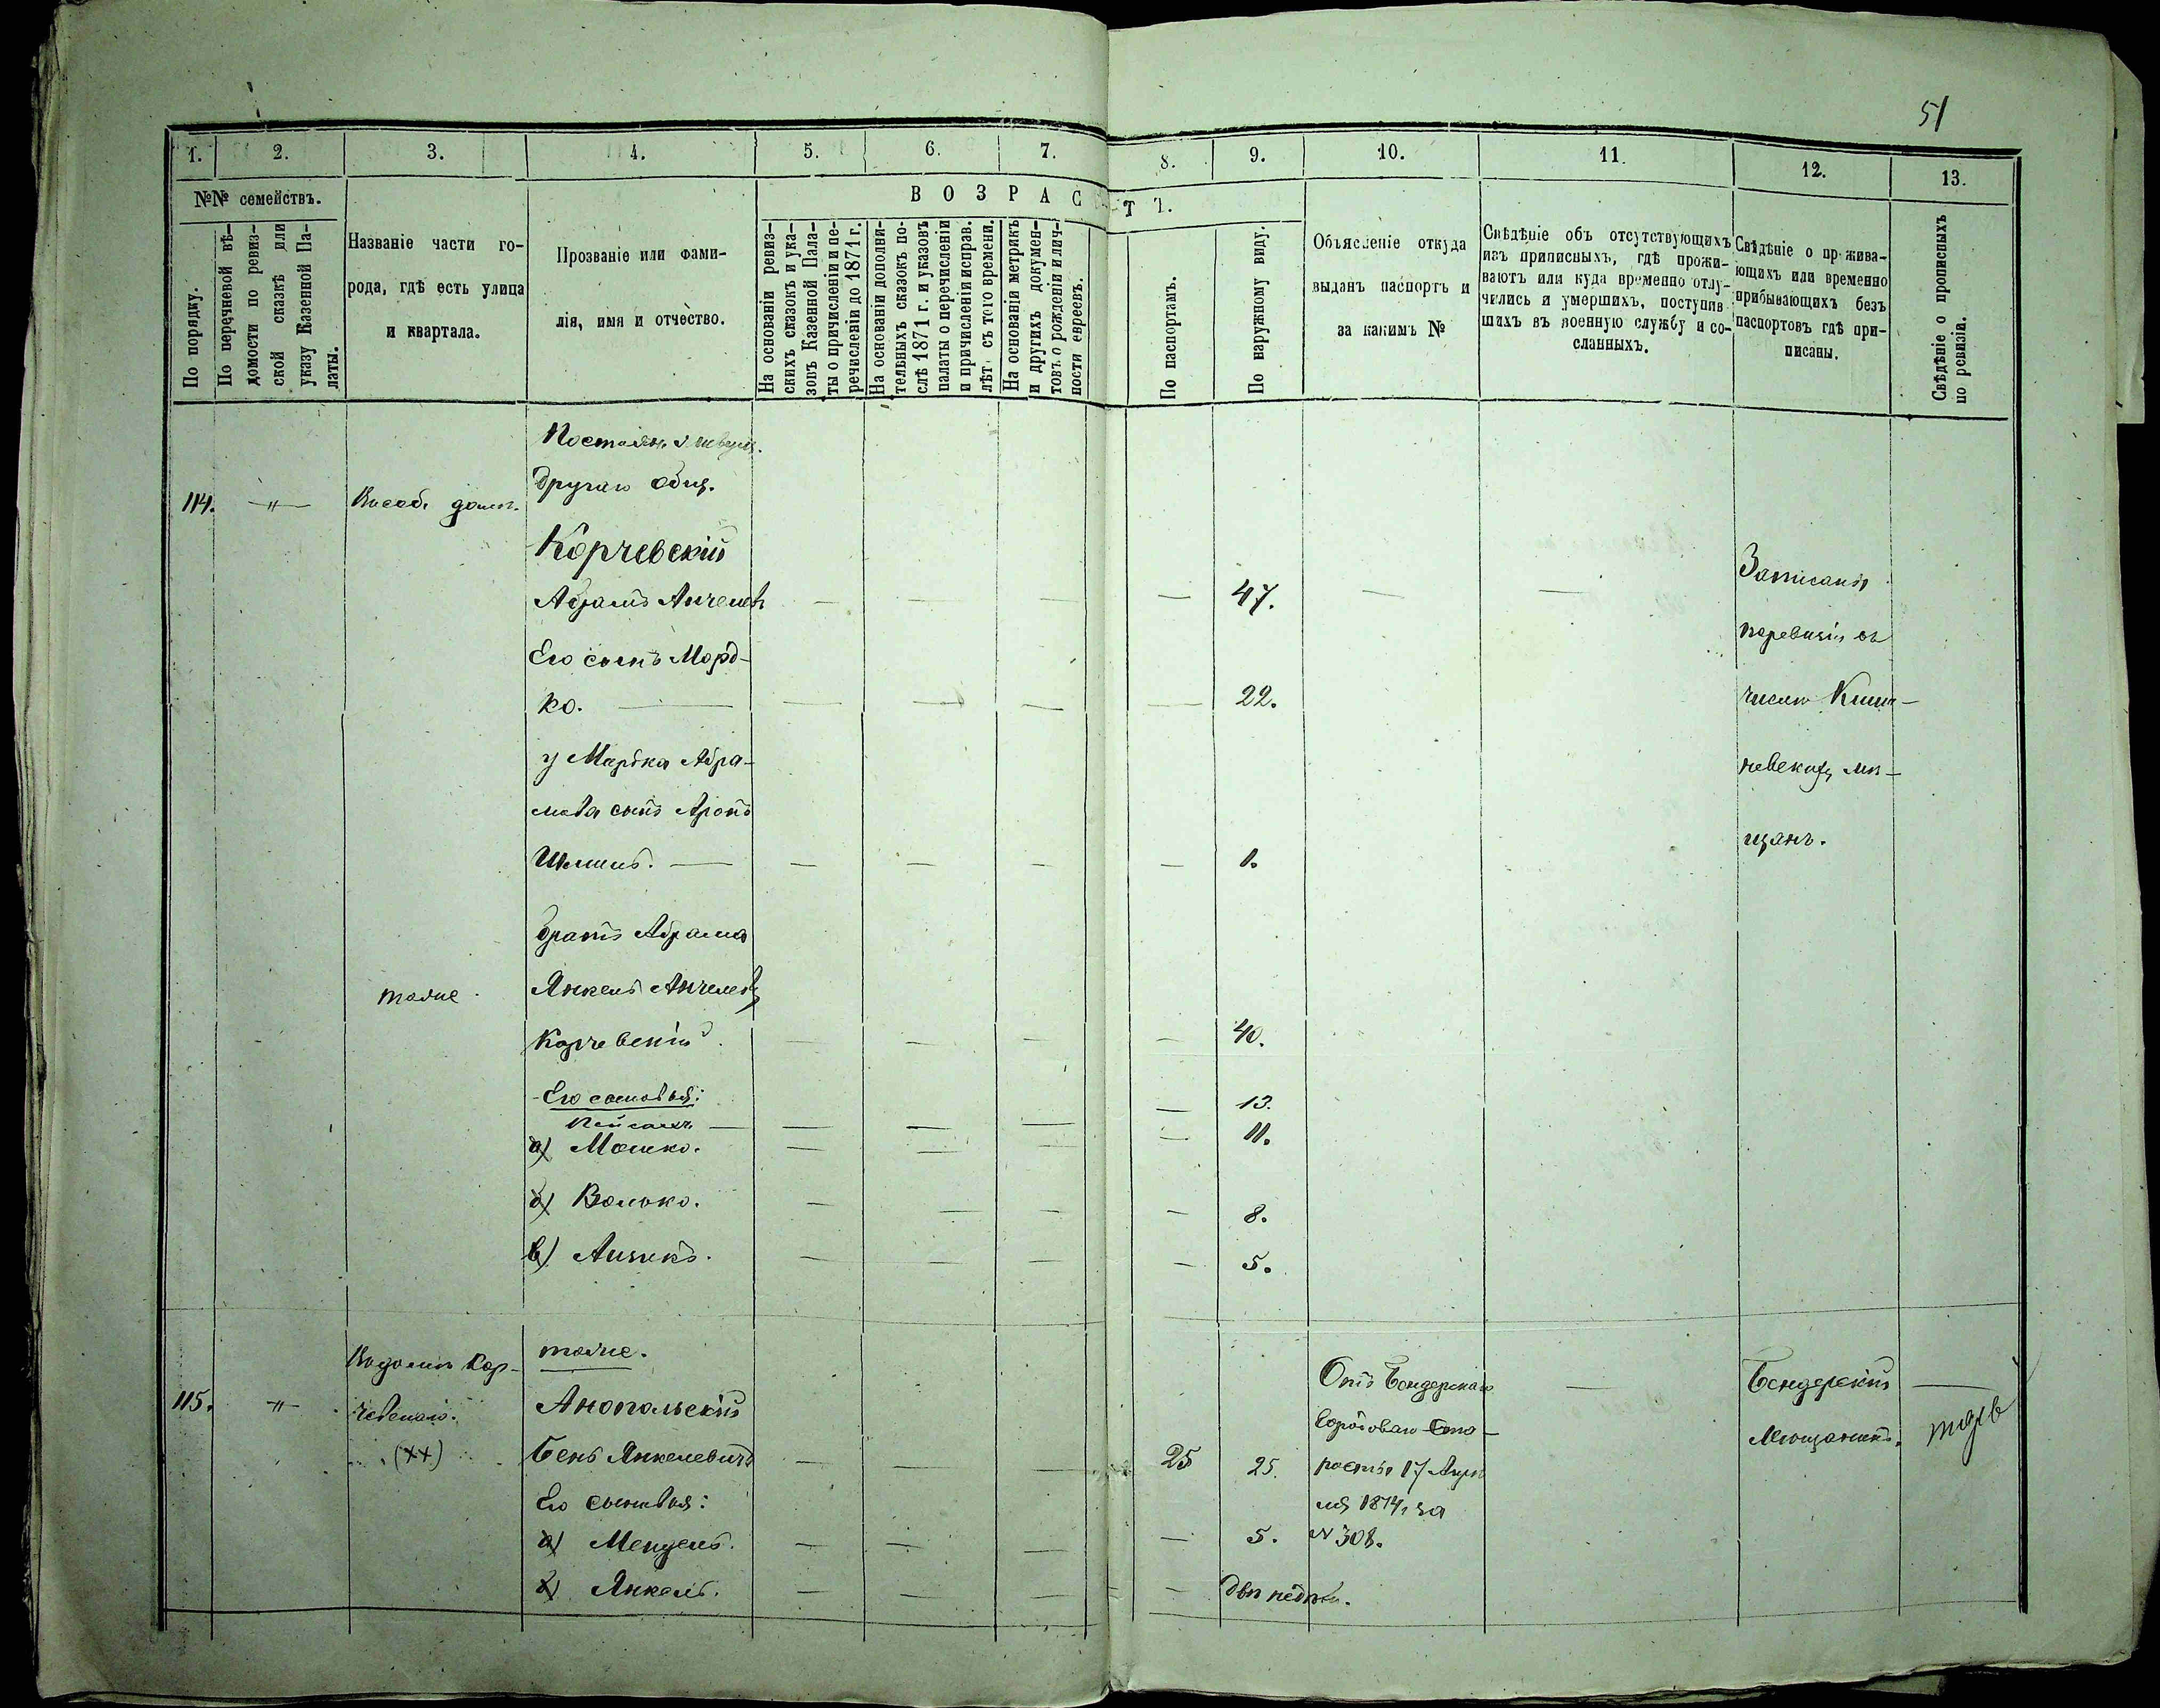 51
1. 2. 3. 4. 5. 6. 7. 8. 9. 10. 11. 12. 13.
№№ семействъ.
По порядку.
По перечневой вѣ-
домости по ревиз-
ской сказкѣ или
указу Казенной Па-
латы.
Названіе части го-
рода, гдѣ есть улица
и квартала.
Прозваніе или фами-
лія, имя и отчество.
ВОЗРАСТ Т.
На основаніи ревиз-
скихъ сказокъ и ука-
зовъ Казенной Пала-
ты о причисленіи и пе-
речисленіи до 1871 г.
На основаніи дополни-
тельныхъ сказокъ по-
слѣ 1871 г. и указовъ
палаты о перечисленіи
и причисленіи исправ.
лѣт. съ того времени.
На основаніи метрикъ
и другихъ докумен-
товъ о рожденіи и лич-
ности евреевъ.
По паспортамъ.
По наружному виду.
Объясненіе откуда
выданъ паспортъ и
за какимъ №
Свѣдѣніе объ отсутствующихъ
изъ приписныхъ, гдѣ прожи-
ваютъ или куда временно отлу-
чились и умершихъ, поступив-
шихъ въ военную службу и со-
сланныхъ.
Свѣдѣніе о прожива-
ющихъ или временно
прибывающихъ безъ
паспортовъ гдѣ при-
писаны.
Свѣдѣніе о прописныхъ
по ревизіи.
другаго общ.
114. — " — домѣ.
Корчевскій
Абрамъ Анчелев — — — — 47. — —
Его сынъ Морд-
ко. — — — — — 22.
у Мардка Абра-
мова сынъ Аронъ
Шлима. — — — — — 1.
Записанъ
поревизіи въ
числѣ Киши-
невскихъ мѣ-
щанъ.
братъ Абрама
тоже. Янкель Анчелевъ
Корчевскій. — — — — 40.
Его сыновья: — 13.
Пейсахъ — — — —
а) Мошко. — — — 11.
б) Волько. — — — — 8.
в) Аизикъ. — — — — 5.
тоже.
115. — " — Вдоми Кор-
чевскаго.
(++)
Анопольскій
Бень Янкелевичъ — — — 25 25.
Его сыновья:
а) Мендель. — — — — 5.
б) Янкель. — — — — двѣ недѣли.
Отъ Бендерскаго
Городоваго Ста-
росты 17 Апрѣ-
ля 1874, за
№ 308.
—
Бендерскій
Мѣщанинъ.
—